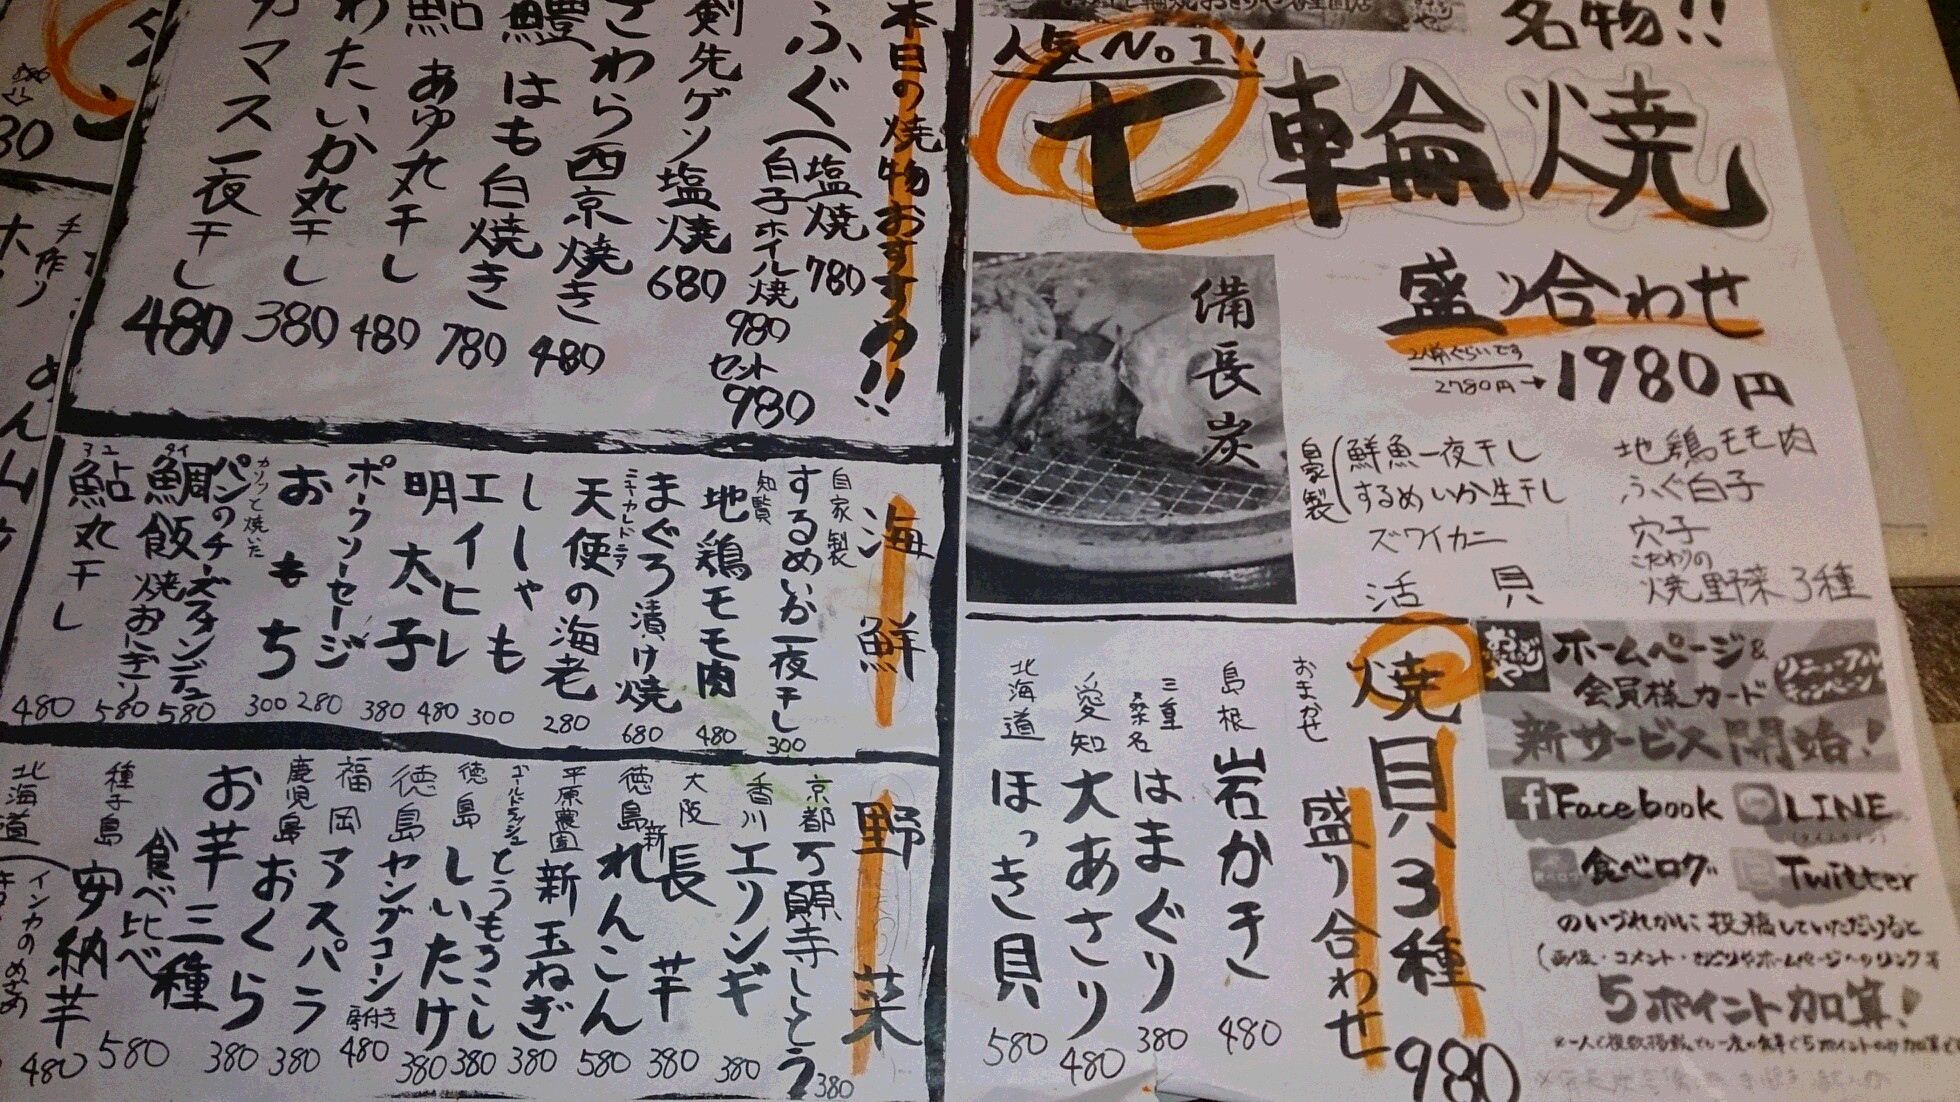 名物!!
人気No.1!!
七輪焼
盛り合わせ
2人前ぐらいです
2780円→1980円
備長炭
自家製
鮮魚一夜干し
するめいか生干し
ズワイカニ
活貝
地鶏モモ肉
ふぐ白子
穴子
こだわりの
焼野菜3種
焼貝3種
盛り合わせ
980
おまかせ
島根 岩かき 480
三重 桑名 はまぐり 380
愛知 大あさり 480
北海道 ほっき貝 580
ホームページ&
会員様カード
リニューアル
キャンペーン
新サービス開始!
Facebook
LINE
食べログ
Twitter
のいづれかに投稿していただけると
5ポイント加算!
本日の焼物おすすめ!!
ふぐ
塩焼 780
白子ホイル焼 980
セット 980
剣先ゲソ塩焼 680
さわら西京焼き 480
鱧 はも白焼き 780
鮎 あゆ丸干し 480
わたいか丸干し 380
カマス一夜干し 480
海鮮
自家製 するめいか一夜干し 300
知覧 地鶏モモ肉 480
まぐろ漬け焼 680
ニューカレドニア 天使の海老 280
ししゃも 300
エイヒレ 480
明太子 380
ポークソーセージ 280
おもち 300
カリッと焼いた
パンのチーズフォンデュ 580
鯛飯焼おにぎり 580
鮎丸干し 480
野菜
京都 万願寺しとう 380
香川 エリンギ 380
大阪 長芋 380
徳島 新れんこん 580
平原農園 新玉ねぎ 380
ゴールドラッシュ とうもろこし 380
徳島 しいたけ 380
徳島 ヤングコーン 480
福岡 アスパラ 380
鹿児島 おくら 380
お芋三種
食べ比べ 580
種子島 安納芋 480
北海道
インカのめざめ
手作り